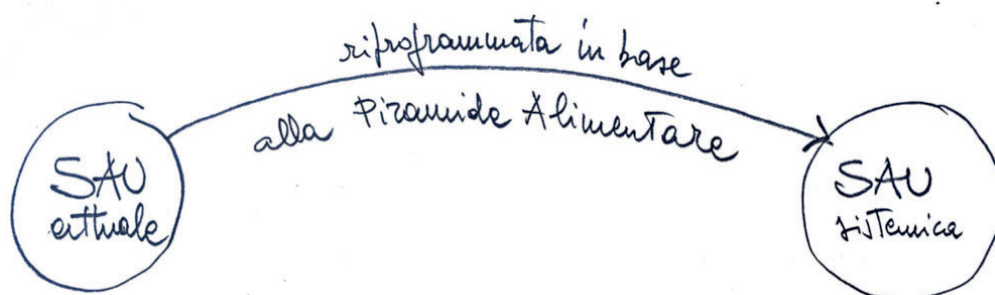 riprogrammata in base
alla Piramide Alimentare
SAU
attuale
SAU
sistemica